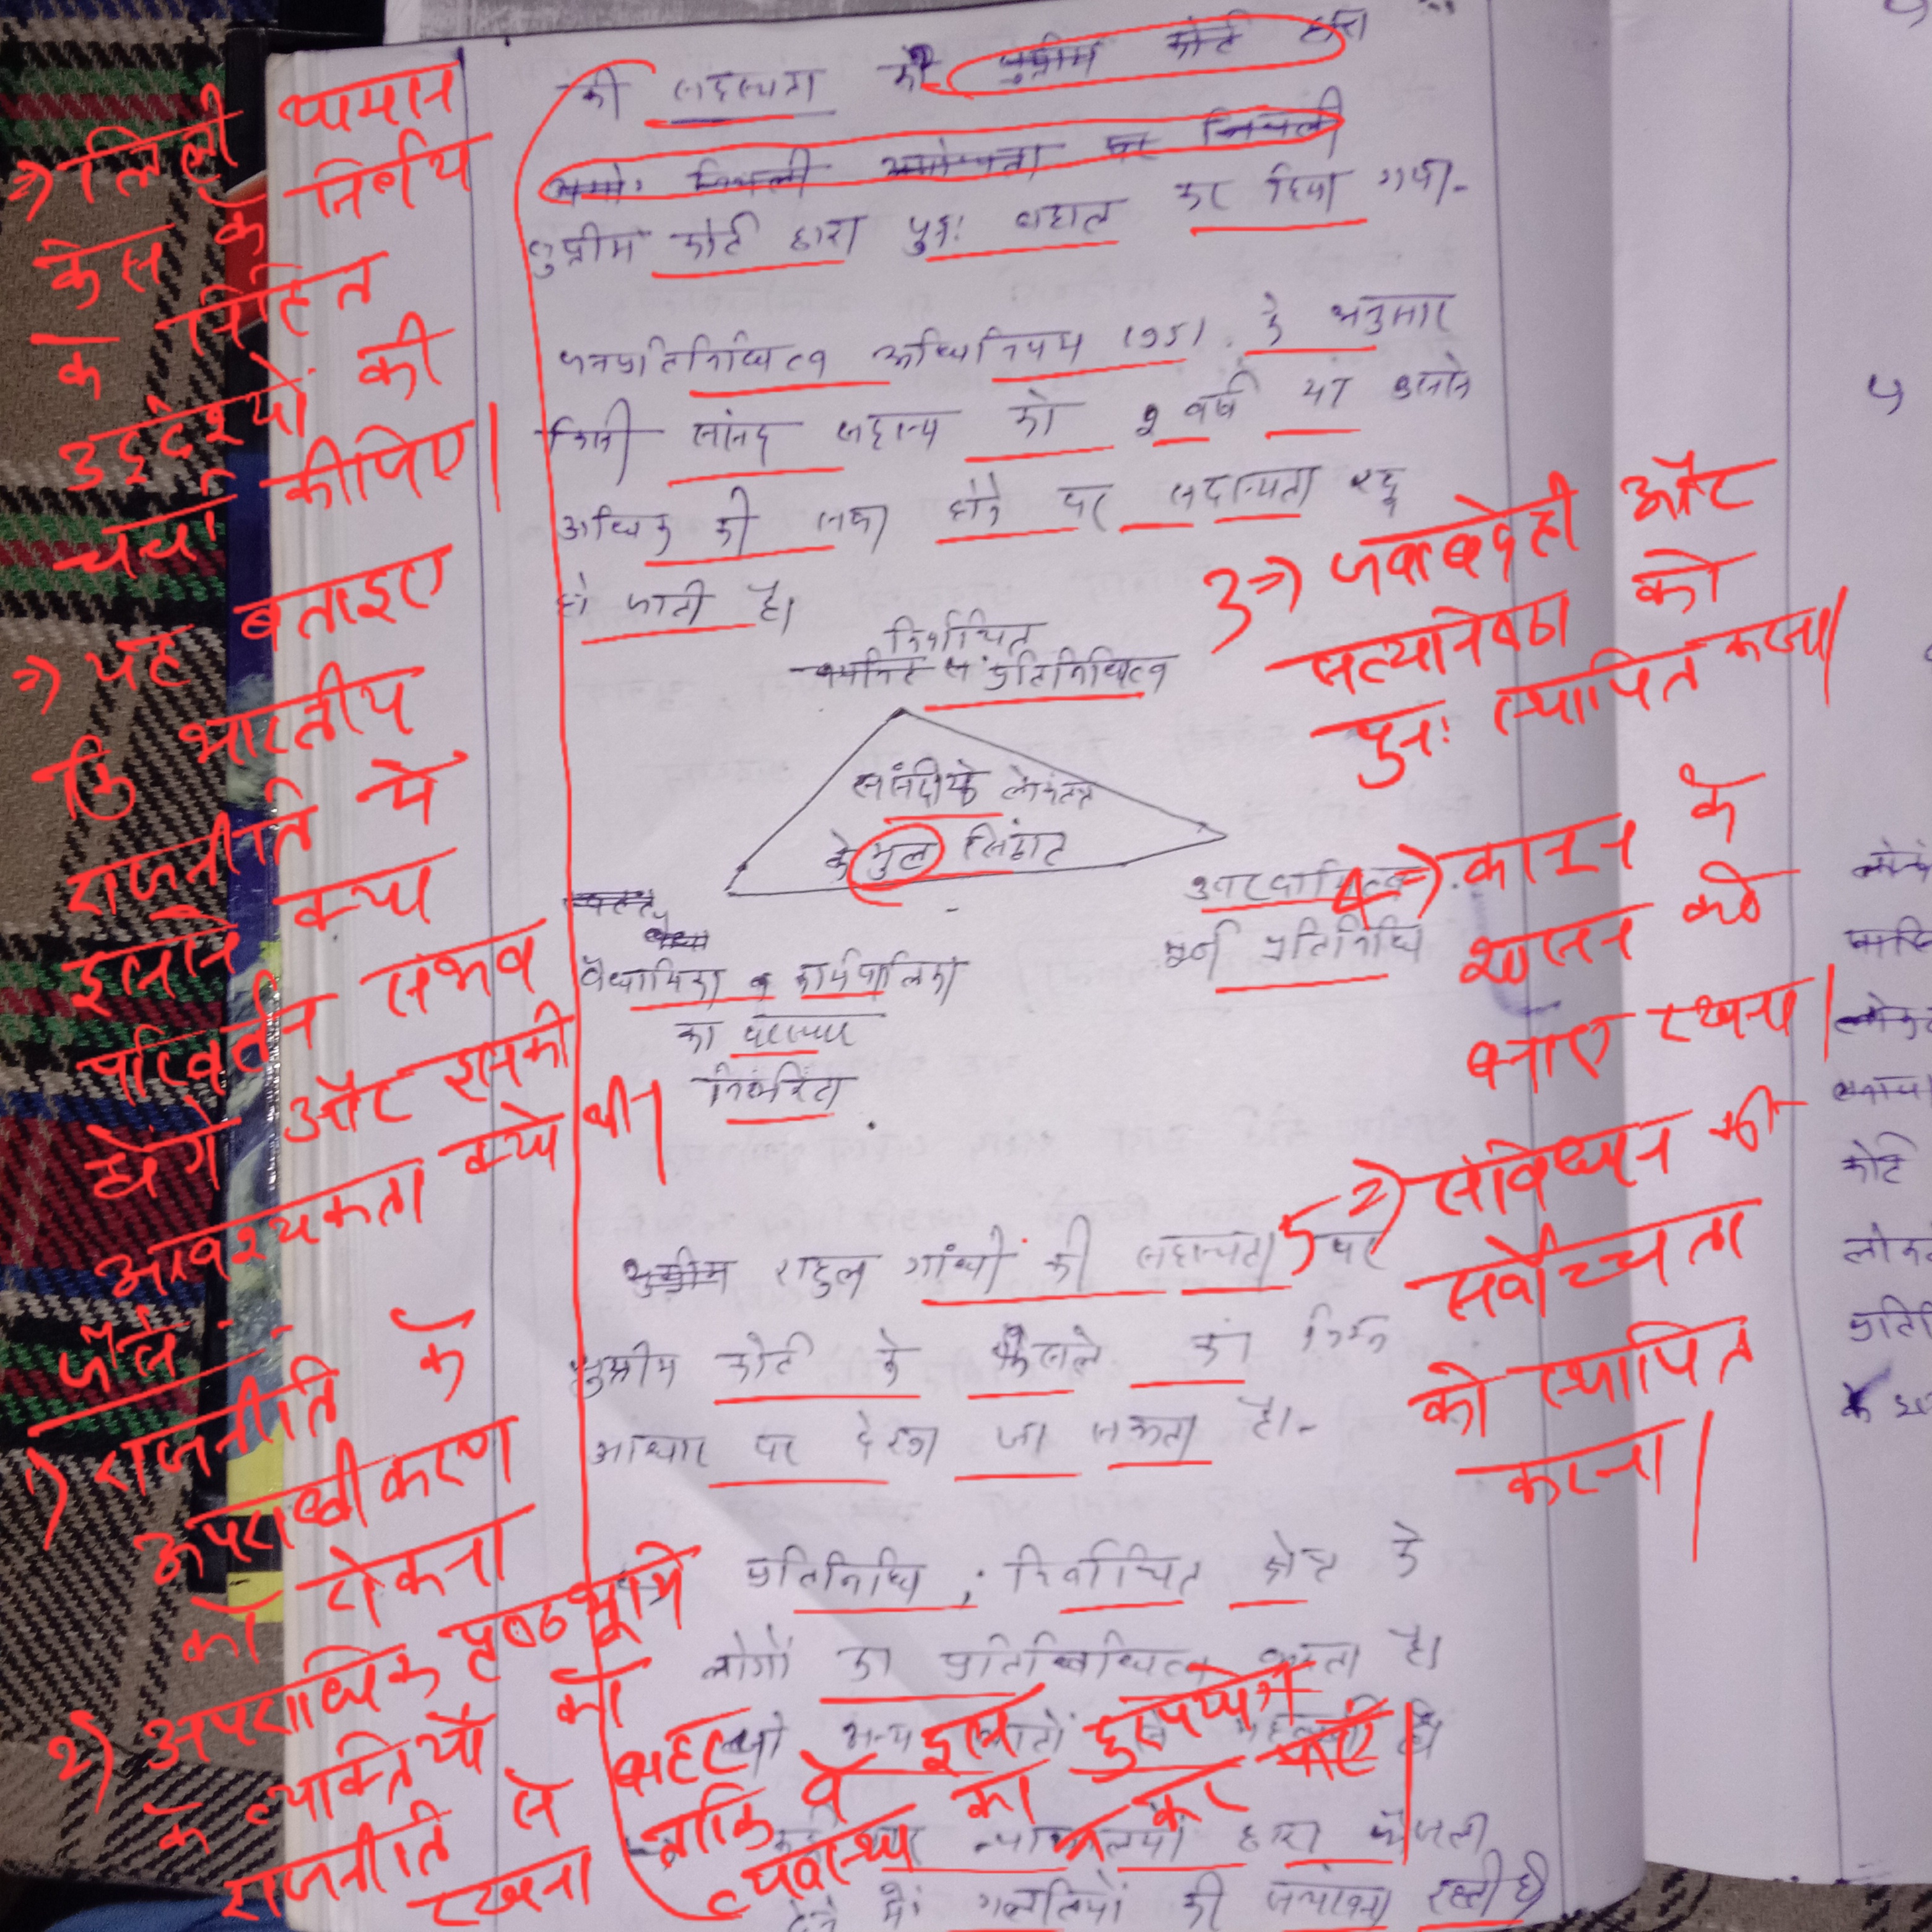 की सदस्यता को सुप्रीम कोर्ट द्वारा
सुप्रीम कोर्ट द्वारा पुनः बहाल कर दिया गया-
जनप्रतिनिधित्व अधिनियम 1951 के अनुसार
किसी सांसद सदस्य को 2 वर्ष या उससे
अधिक की सजा होने पर सदस्यता रद्द
हो जाती है।
निर्वाचित
प्रतिनिधित्व
संसदीय लोकतंत्र
के मुल सिद्धांत
उत्तरदायित्व
पूर्ण प्रतिनिधि
वैधायिका व कार्यपालिका
का परस्पर
निर्भरता
राहुल गांधी की सदस्यता पर
सुप्रीम कोर्ट के फैसले का निम्न
आधार पर देखा जा सकता है।-
प्रतिनिधि ; निर्वाचित क्षेत्र के
लोगों का प्रतिनिधित्व करता है।
द्वारा फैसला
देने में गलतियों की संभावना रहती है
=) लिली थामस
केस के निर्णय
के निहित
उद्देश्यों की
चर्चा कीजिए|
=) यह बताइए
कि भारतीय
राजनीति में
इससे क्या
परिवर्तन संभव
होंगे और इसकी
आवश्यकता क्यों थी|
जैसे--
1) राजनीति के
अपराधीकरण
को रोकना
2) अपराधिक पृष्ठभूमि
के व्यक्तियों को
राजनीति से बाहर
रखना ताकि वे इस
व्यवस्था का दुरुपयोग
न कर
3=) जवाबदेही और
सत्यनिष्ठा को
पुनः स्थापित करना|
4=) कानून के
शासन को
बनाए रखना|
5=) संविधान की
सर्वोच्चता
को स्थापित
करना|